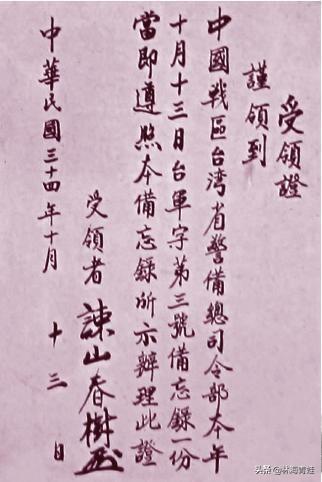 受領證
謹領到
中國戰區台湾省警備總司令部本年
十月十三日台軍字第三號備忘錄一份
當即遵照本備忘錄所示辦理此證
受領者 諫山春樹
中華民國三十四年十月十三日
头条@林海青蛙